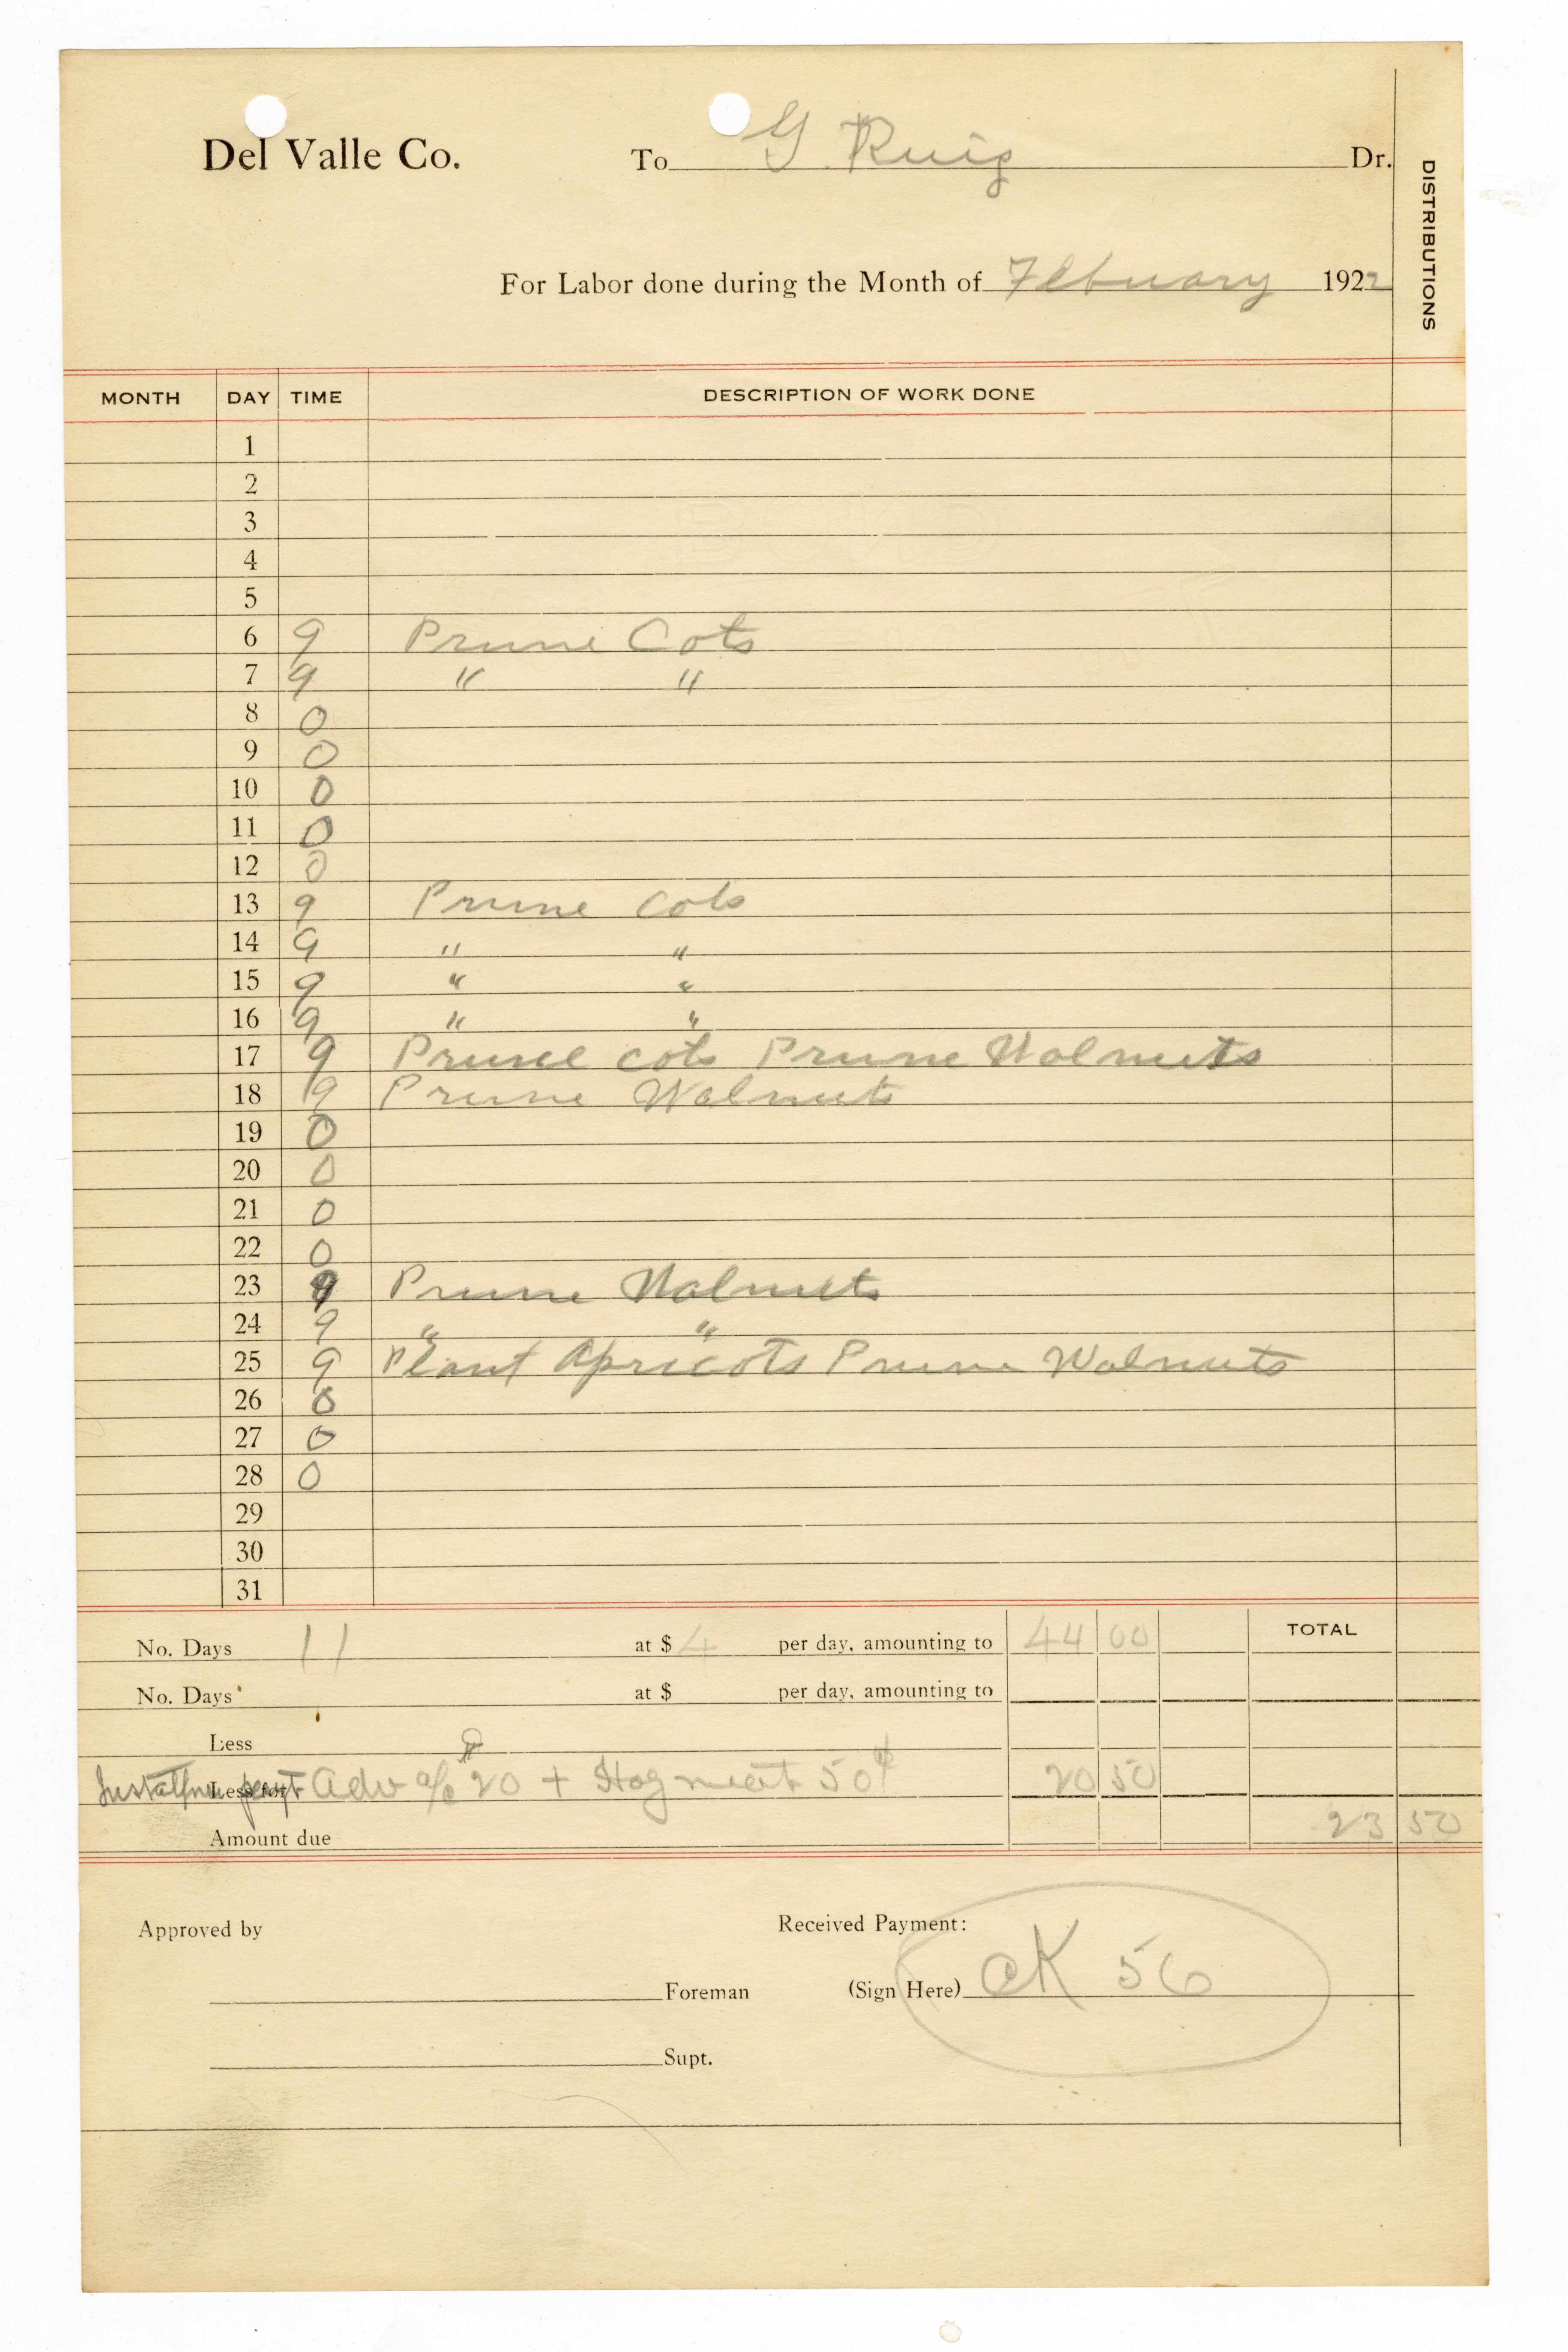 Del Valle Co. To G. Ruiz Dr.
DISTRIBUTIONS
For Labor done during the Month of Febuary 1922
MONTH DAY TIME DESCRIPTION OF WORK DONE
1
2
3
4
5
6 9 Prune Cots
7 9 " "
8 0
9 0
10 0
11 0
12 0
13 9 Prune Cots
14 9 " "
15 9 " "
16 9 " "
17 9 Prune cots Prune Walnuts
18 9 Prune Walnuts
19 0
20 0
21 0
22 0
23 9 Prune Walnuts
24 9 " "
25 9 Plant Apricots Prune Walnuts
26 0
27 0
28 0
29
30
31
No. Days 11 at $ 4 per day, amounting to 44 00 TOTAL
No. Days at $ per day, amounting to
Less
Less for Adv a/c 20 + Hog meat 50¢ 20 50
Amount due 23 50
Approved by Received Payment:
Foreman (Sign Here) CK 56
Supt.